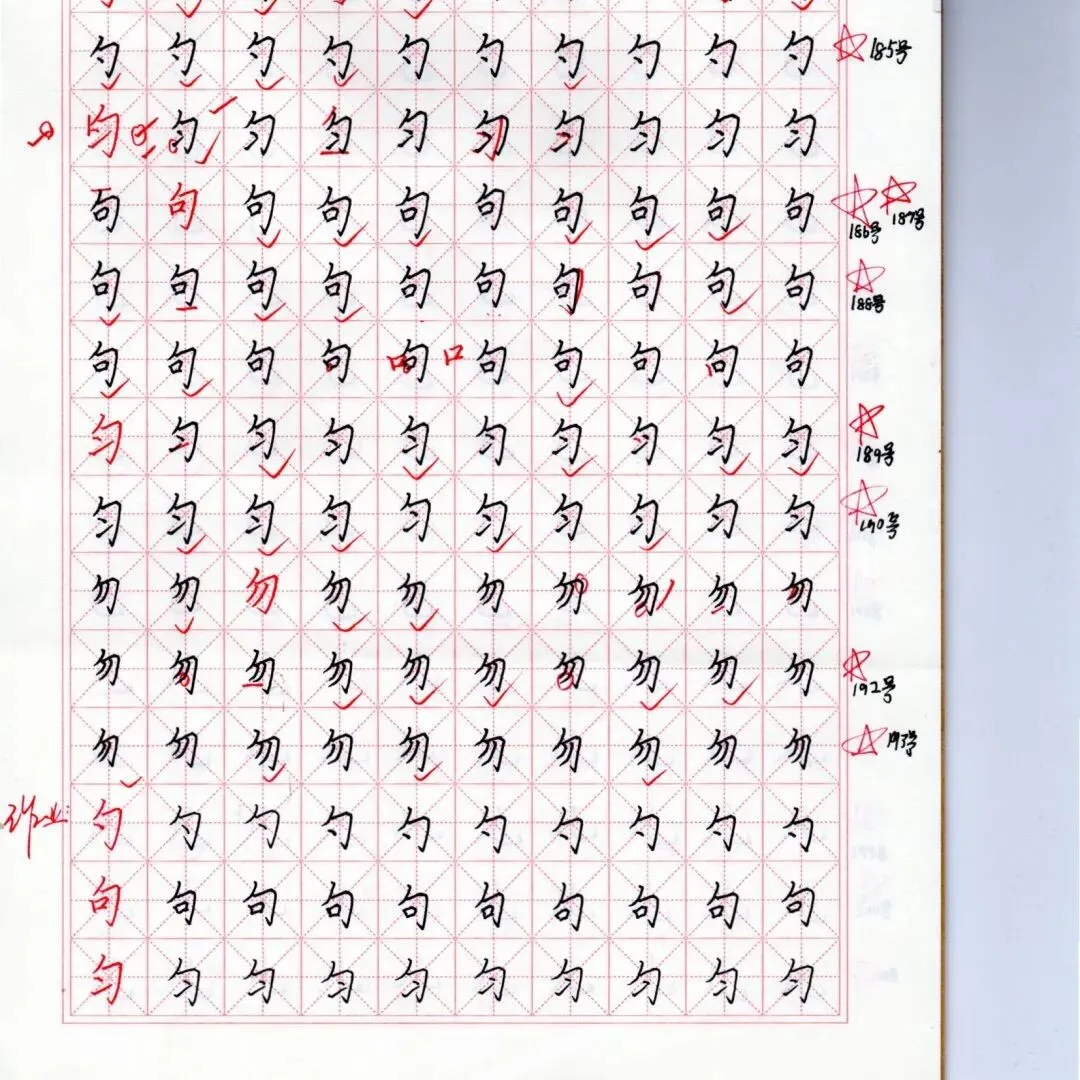 勺勺勺勺勺勺勺勺勺勺 185号
匀匀匀匀匀匀匀匀匀匀
句句句句句句句句句句 186号 187号
句句句句句句句句句句 188号
句句句句句句句句句句 口
匀匀匀匀匀匀匀匀匀匀 189号
匀匀匀匀匀匀匀匀匀匀 190号
勿勿勿勿勿勿勿勿勿勿
勿勿勿勿勿勿勿勿勿勿 192号
勿勿勿勿勿勿勿勿勿勿 193号
作业: 勺勺勺勺勺勺勺勺勺勺
句句句句句句句句句句
匀匀匀匀匀匀匀匀匀匀